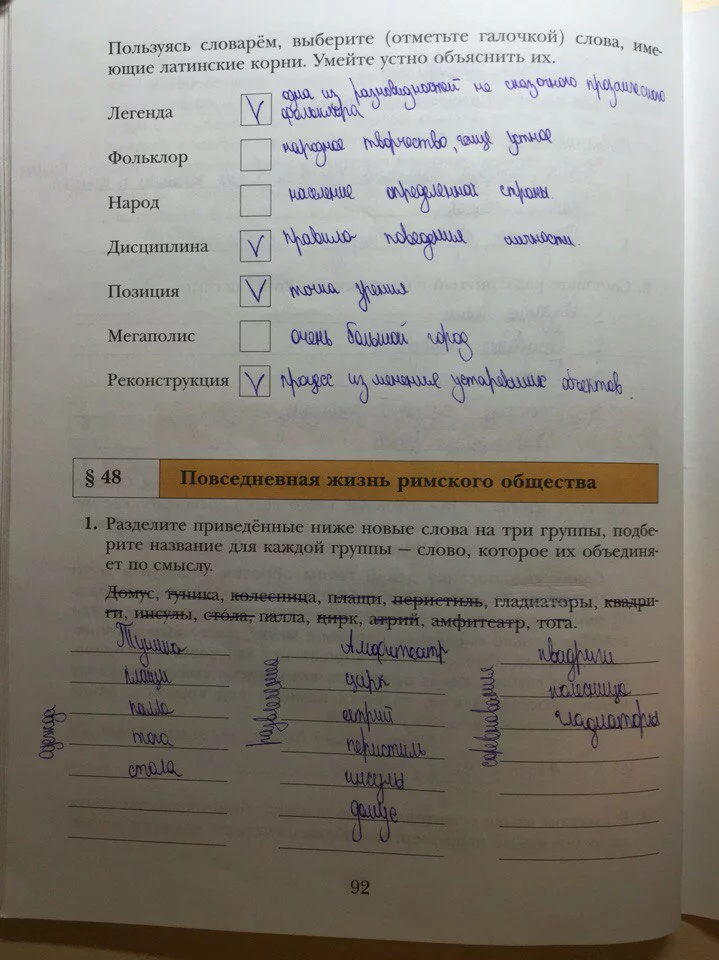 Пользуясь словарём, выберите (отметьте галочкой) слова, име-
ющие латинские корни. Умейте устно объяснить их.
Легенда V одна из разновидностей не сказочного прозаического
фольклора
Фольклор народное творчество, чаще устное
Народ население определенной страны.
Дисциплина V правила поведения личности.
Позиция V точка зрения
Мегаполис очень большой город
Реконструкция V процесс изменения устаревших объектов.
§ 48 Повседневная жизнь римского общества
1. Разделите приведённые ниже новые слова на три группы, подбе-
рите название для каждой группы — слово, которое их объединя-
ет по смыслу.
Домус, туника, колесница, плащи, перистиль, гладиаторы, квадри-
ги, инсулы, сто́ла, палла, цирк, атрий, амфитеатр, тога.
одежда
Туника
плащи
палла
тога
стола
развлечения
Амфитеатр
цирк
атрий
перистиль
инсулы
домус
соревнования
квадриги
колесница
гладиаторы
92